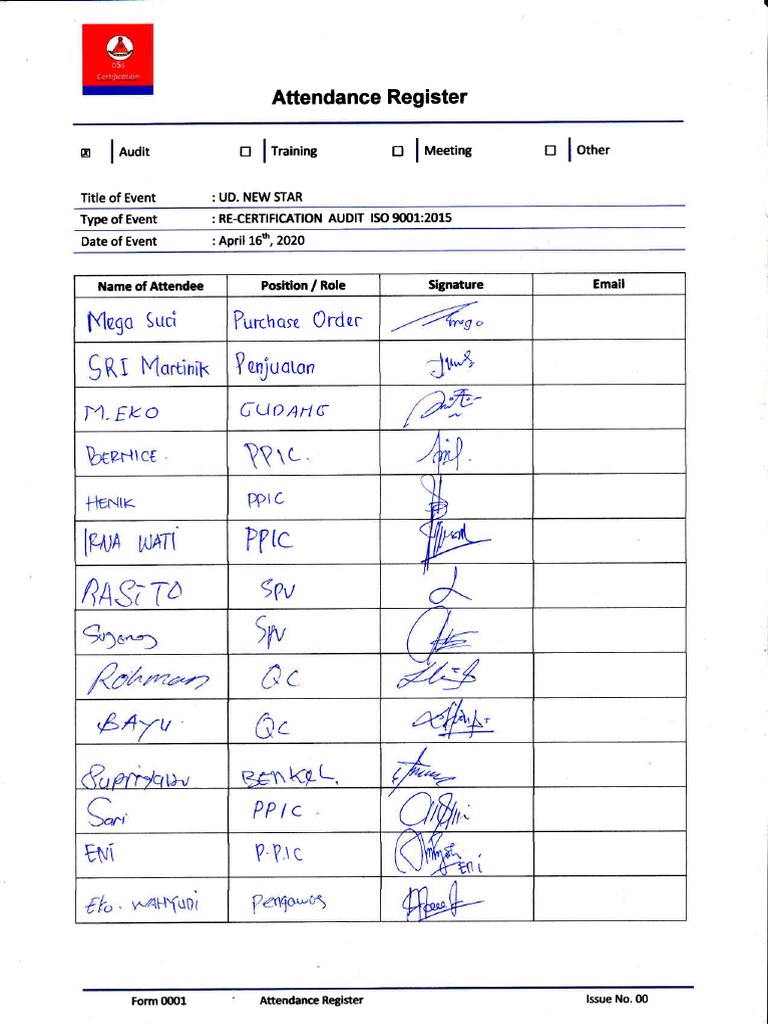 DSS
Certification
Attendance Register
☒ Audit ☐ Training ☐ Meeting ☐ Other
Title of Event : UD. NEW STAR
Type of Event : RE-CERTIFICATION AUDIT ISO 9001:2015
Date of Event : April 16th, 2020
Name of Attendee Position / Role Signature Email
Mega Suci Purchase Order
SRI Martinik Penjualan
M. EKO GUDANG
BERNICE. PPIC.
HENIK PPIC
IRNA WATI PPIC
RASITO SPV
SPV
Rohman QC
BAYU. QC
BENKEL.
Sari PPIC.
ENI P.PIC ENI
Eko. WAHYUDI Pengawas
Form 0001 Attendance Register Issue No. 00